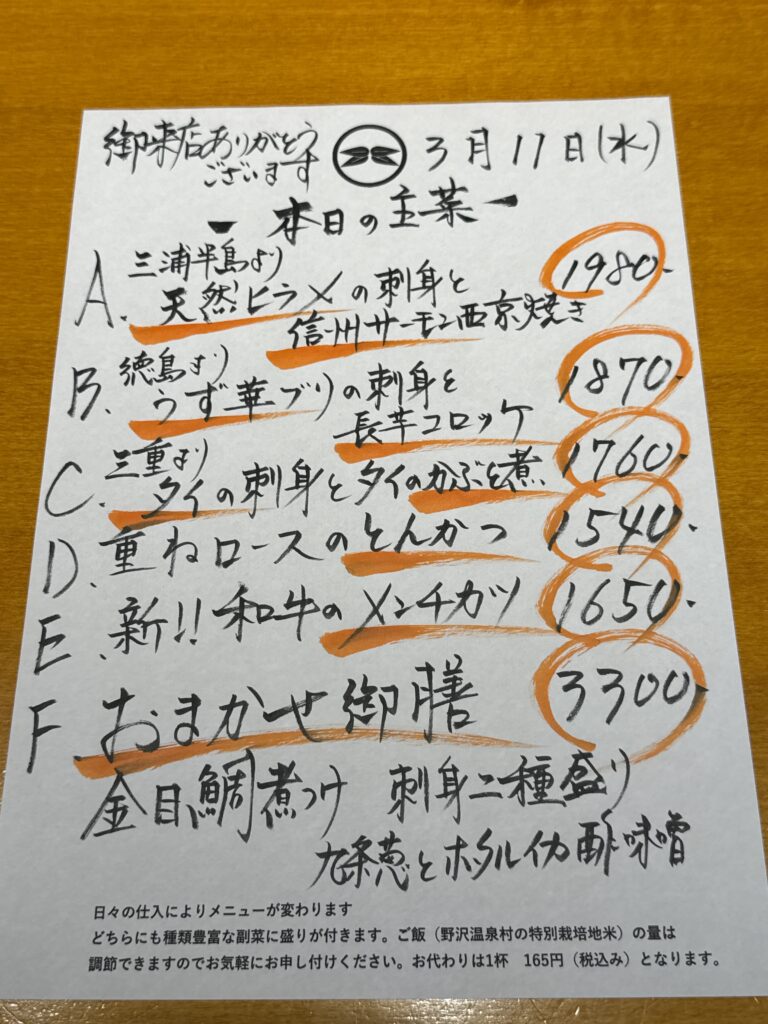 御来店ありがとう
ございます
3月11日(水)
本日の主菜
A. 三浦半島より
天然ヒラメの刺身と
信州サーモン西京焼き
1980-
B. 徳島より
うず華ブリの刺身と
長芋コロッケ
1870-
C. 三重より
タイの刺身とタイのかぶと煮
1760-
D. 重ねロースのとんかつ 1540-
E. 新!! 和牛のメンチカツ 1650-
F. おまかせ御膳 3300-
金目鯛煮つけ 刺身二種盛り
九条葱とホタルイカ酢味噌
日々の仕入によりメニューが変わります
どちらにも種類豊富な副菜に盛りが付きます。ご飯(野沢温泉村の特別栽培地米)の量は
調節できますのでお気軽にお申し付けください。お代わりは1杯 165円(税込み)となります。